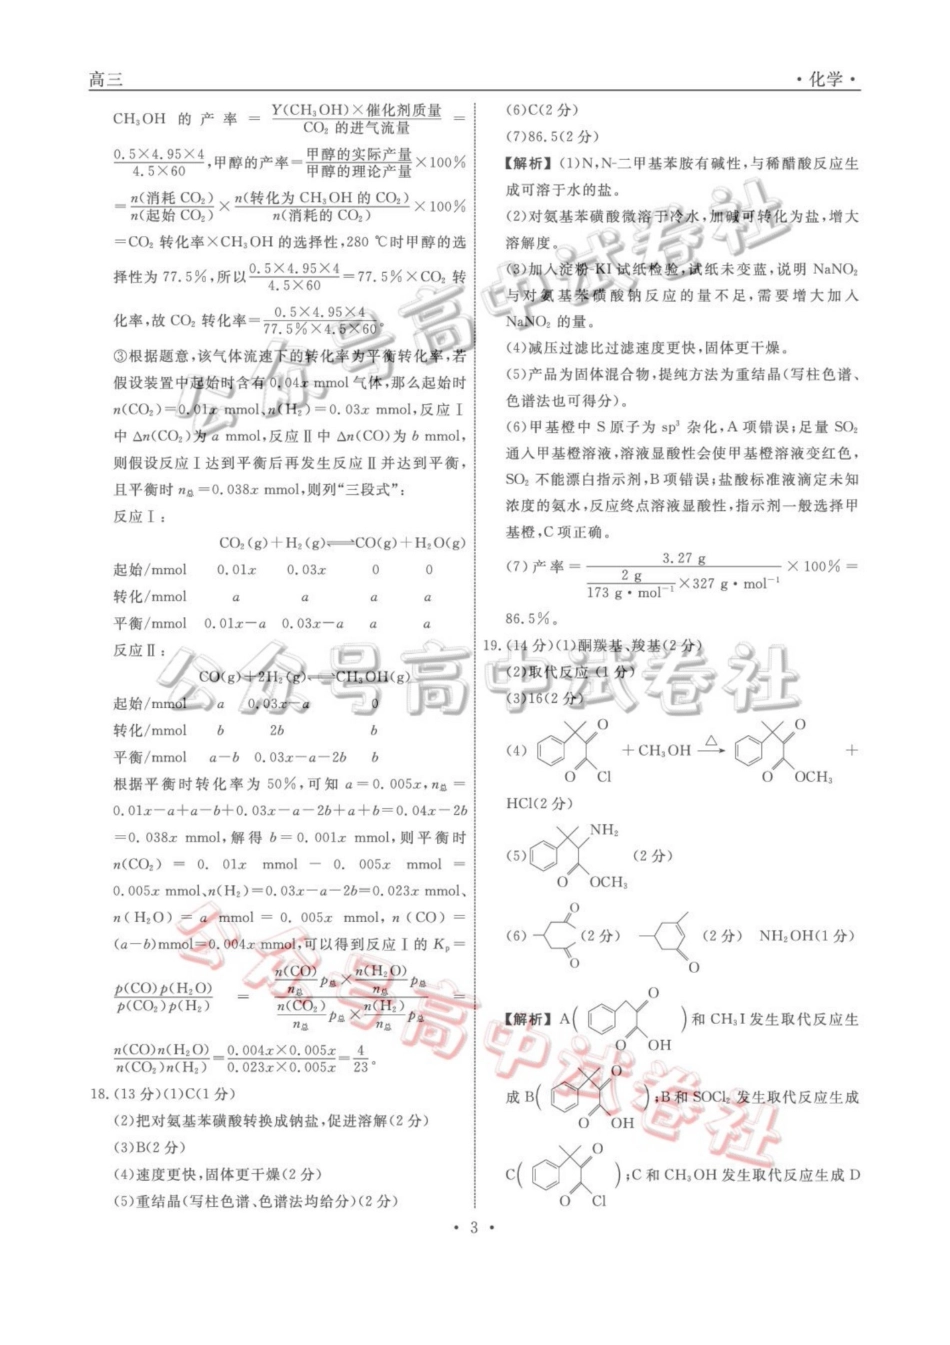 高三
·化学·
CH₃OH 的产率 = Y(CH₃OH)×催化剂质量 / CO₂ 的进气流量 =
0.5×4.95×4 / 4.5×60 ,甲醇的产率= 甲醇的实际产量 / 甲醇的理论产量 ×100%
= n(消耗 CO₂) / n(起始 CO₂) × n(转化为 CH₃OH 的 CO₂) / n(消耗的 CO₂) ×100%
=CO₂ 转化率×CH₃OH 的选择性,280 ℃时甲醇的选
择性为 77.5%,所以 0.5×4.95×4 / 4.5×60 =77.5%×CO₂ 转
化率,故 CO₂ 转化率= 0.5×4.95×4 / 77.5%×4.5×60 。
③根据题意,该气体流速下的转化率为平衡转化率,若
假设装置中起始时含有 0.04x mmol 气体,那么起始时
n(CO₂)=0.01x mmol、n(H₂)=0.03x mmol,反应Ⅰ
中 Δn(CO₂)为 a mmol,反应Ⅱ中 Δn(CO)为 b mmol,
则假设反应Ⅰ达到平衡后再发生反应Ⅱ并达到平衡,
且平衡时 n总=0.038x mmol,则列“三段式”:
反应Ⅰ:
CO₂(g)+H₂(g)⇌CO(g)+H₂O(g)
起始/mmol 0.01x 0.03x 0 0
转化/mmol a a a a
平衡/mmol 0.01x-a 0.03x-a a a
反应Ⅱ:
CO(g)+2H₂(g)⇌CH₃OH(g)
起始/mmol a 0.03x-a 0
转化/mmol b 2b b
平衡/mmol a-b 0.03x-a-2b b
根据平衡时转化率为 50%,可知 a=0.005x,n总=
0.01x-a+a-b+0.03x-a-2b+a+b=0.04x-2b
=0.038x mmol,解得 b=0.001x mmol,则平衡时
n(CO₂) = 0.01x mmol - 0.005x mmol =
0.005x mmol、n(H₂)=0.03x-a-2b=0.023x mmol、
n(H₂O)=a mmol=0.005x mmol,n(CO)=
(a-b)mmol=0.004x mmol,可以得到反应Ⅰ的 Kp=
p(CO)p(H₂O) / p(CO₂)p(H₂) = n(CO)/n总 p总 × n(H₂O)/n总 p总 / n(CO₂)/n总 p总 × n(H₂)/n总 p总 =
n(CO)n(H₂O) / n(CO₂)n(H₂) = 0.004x×0.005x / 0.023x×0.005x = 4 / 23 。
18.(13 分)(1)C(1 分)
(2)把对氨基苯磺酸转换成钠盐,促进溶解(2 分)
(3)B(2 分)
(4)速度更快,固体更干燥(2 分)
(5)重结晶(写柱色谱、色谱法均给分)(2 分)
(6)C(2 分)
(7)86.5(2 分)
【解析】(1)N,N-二甲基苯胺有碱性,与稀醋酸反应生
成可溶于水的盐。
(2)对氨基苯磺酸微溶于冷水,加碱可转化为盐,增大
溶解度。
(3)加入淀粉-KI 试纸检验,试纸未变蓝,说明 NaNO₂
与对氨基苯磺酸钠反应的量不足,需要增大加入
NaNO₂ 的量。
(4)减压过滤比过滤速度更快,固体更干燥。
(5)产品为固体混合物,提纯方法为重结晶(写柱色谱、
色谱法也可得分)。
(6)甲基橙中 S 原子为 sp³ 杂化,A 项错误;足量 SO₂
通入甲基橙溶液,溶液显酸性会使甲基橙溶液变红色,
SO₂ 不能漂白指示剂,B项错误;盐酸标准液滴定未知
浓度的氨水,反应终点溶液显酸性,指示剂一般选择甲
基橙,C 项正确。
(7)产率= 3.27 g / 2 g / 173 g·mol⁻¹ ×327 g·mol⁻¹ ×100%=
86.5%。
19.(14 分)(1)酮羰基、羧基(2 分)
(2)取代反应(1 分)
(3)16(2 分)
(4) O O Cl +CH₃OH △ → O O OCH₃ +
HCl(2 分)
(5) NH₂ O OCH₃ (2 分)
(6) O O (2 分) O (2 分) NH₂OH(1 分)
【解析】A( O O OH )和 CH₃I 发生取代反应生
成 B( O O OH );B 和 SOCl₂ 发生取代反应生成
C( O O Cl );C 和 CH₃OH 发生取代反应生成 D
· 3 ·
公众号高中试卷社
公众号高中试卷社
公众号高中试卷社